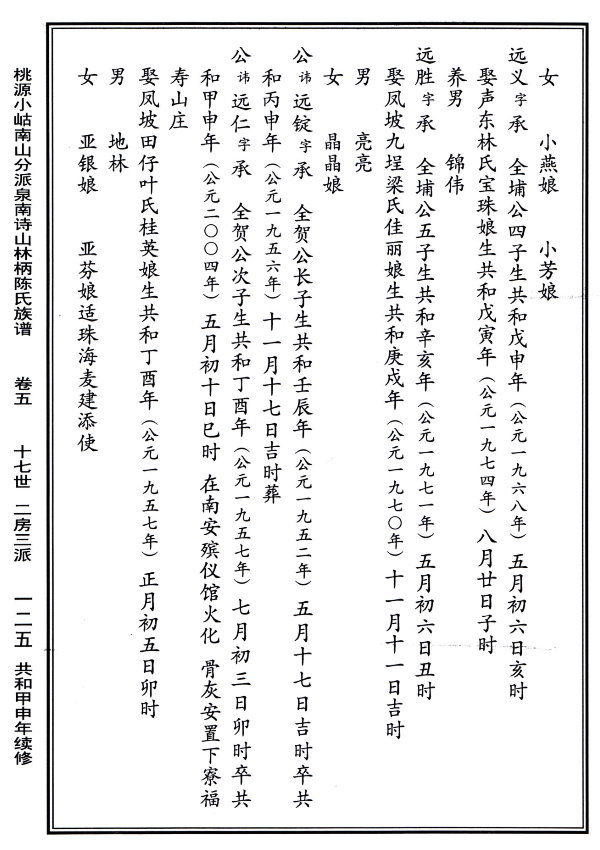 女　小燕娘　小芳娘
远义字承　全埔公四子生共和戊申年（公元一九六八年）五月初六日亥时
娶声东林氏宝珠娘生共和戊寅年（公元一九七四年）八月廿日子时
养男　锦伟
远胜字承　全埔公五子生共和辛亥年（公元一九七一年）五月初六日丑时
娶凤坡九埕梁氏佳丽娘生共和庚戌年（公元一九七〇年）十一月十一日吉时
男　亮亮
女　晶晶娘
公讳远锭字承　全贺公长子生共和壬辰年（公元一九五二年）五月十七日吉时卒共
和丙申年（公元一九五六年）十一月十七日吉时葬
公讳远仁字承　全贺公次子生共和丁酉年（公元一九五七年）七月初三日卯时卒共
和甲申年（公元二〇〇四年）五月初十日巳时 在南安殡仪馆火化 骨灰安置下寮福
寿山庄
娶凤坡田仔叶氏桂英娘生共和丁酉年（公元一九五七年）正月初五日卯时
男　地林
女　亚银娘　亚芬娘适珠海麦建添使
桃源小岵南山分派泉南诗山林柄陈氏族谱　卷五　十七世 二房三派　一二五 共和甲申年续修